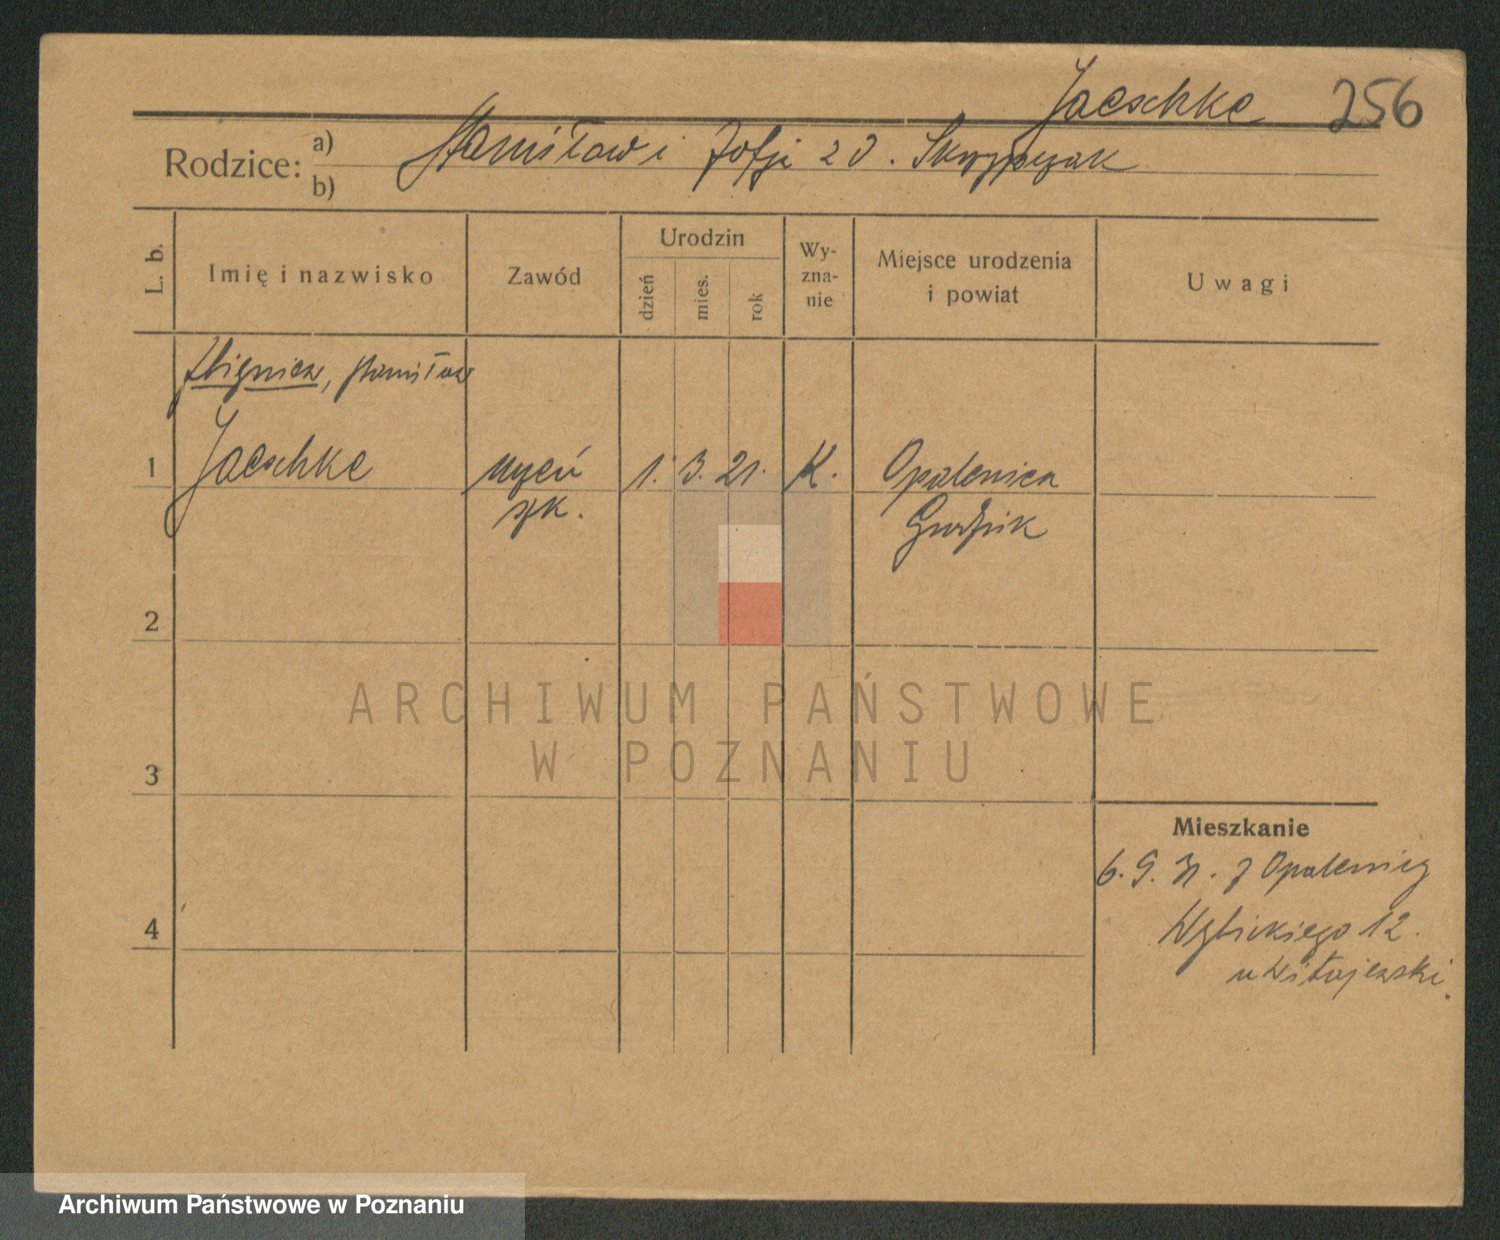 Jaeschke 256
Rodzice: a) Stanisław i Zofji z d. Skrzypczak
b)
L. b.
Imię i nazwisko
Zawód
Urodzin
dzień
mies.
rok
Wy-
zna-
nie
Miejsce urodzenia
i powiat
Uwagi
Zbigniew, Stanisław
1 Jaeschke uczeń 1. 3. 21. K. Opalenica
szk. Grodzisk
2
ARCHIWUM PAŃSTWOWE
W POZNANIU
3
Mieszkanie
6. 9. z Opalenicy
4
Wybickiego 12.
u
Archiwum Państwowe w Poznaniu